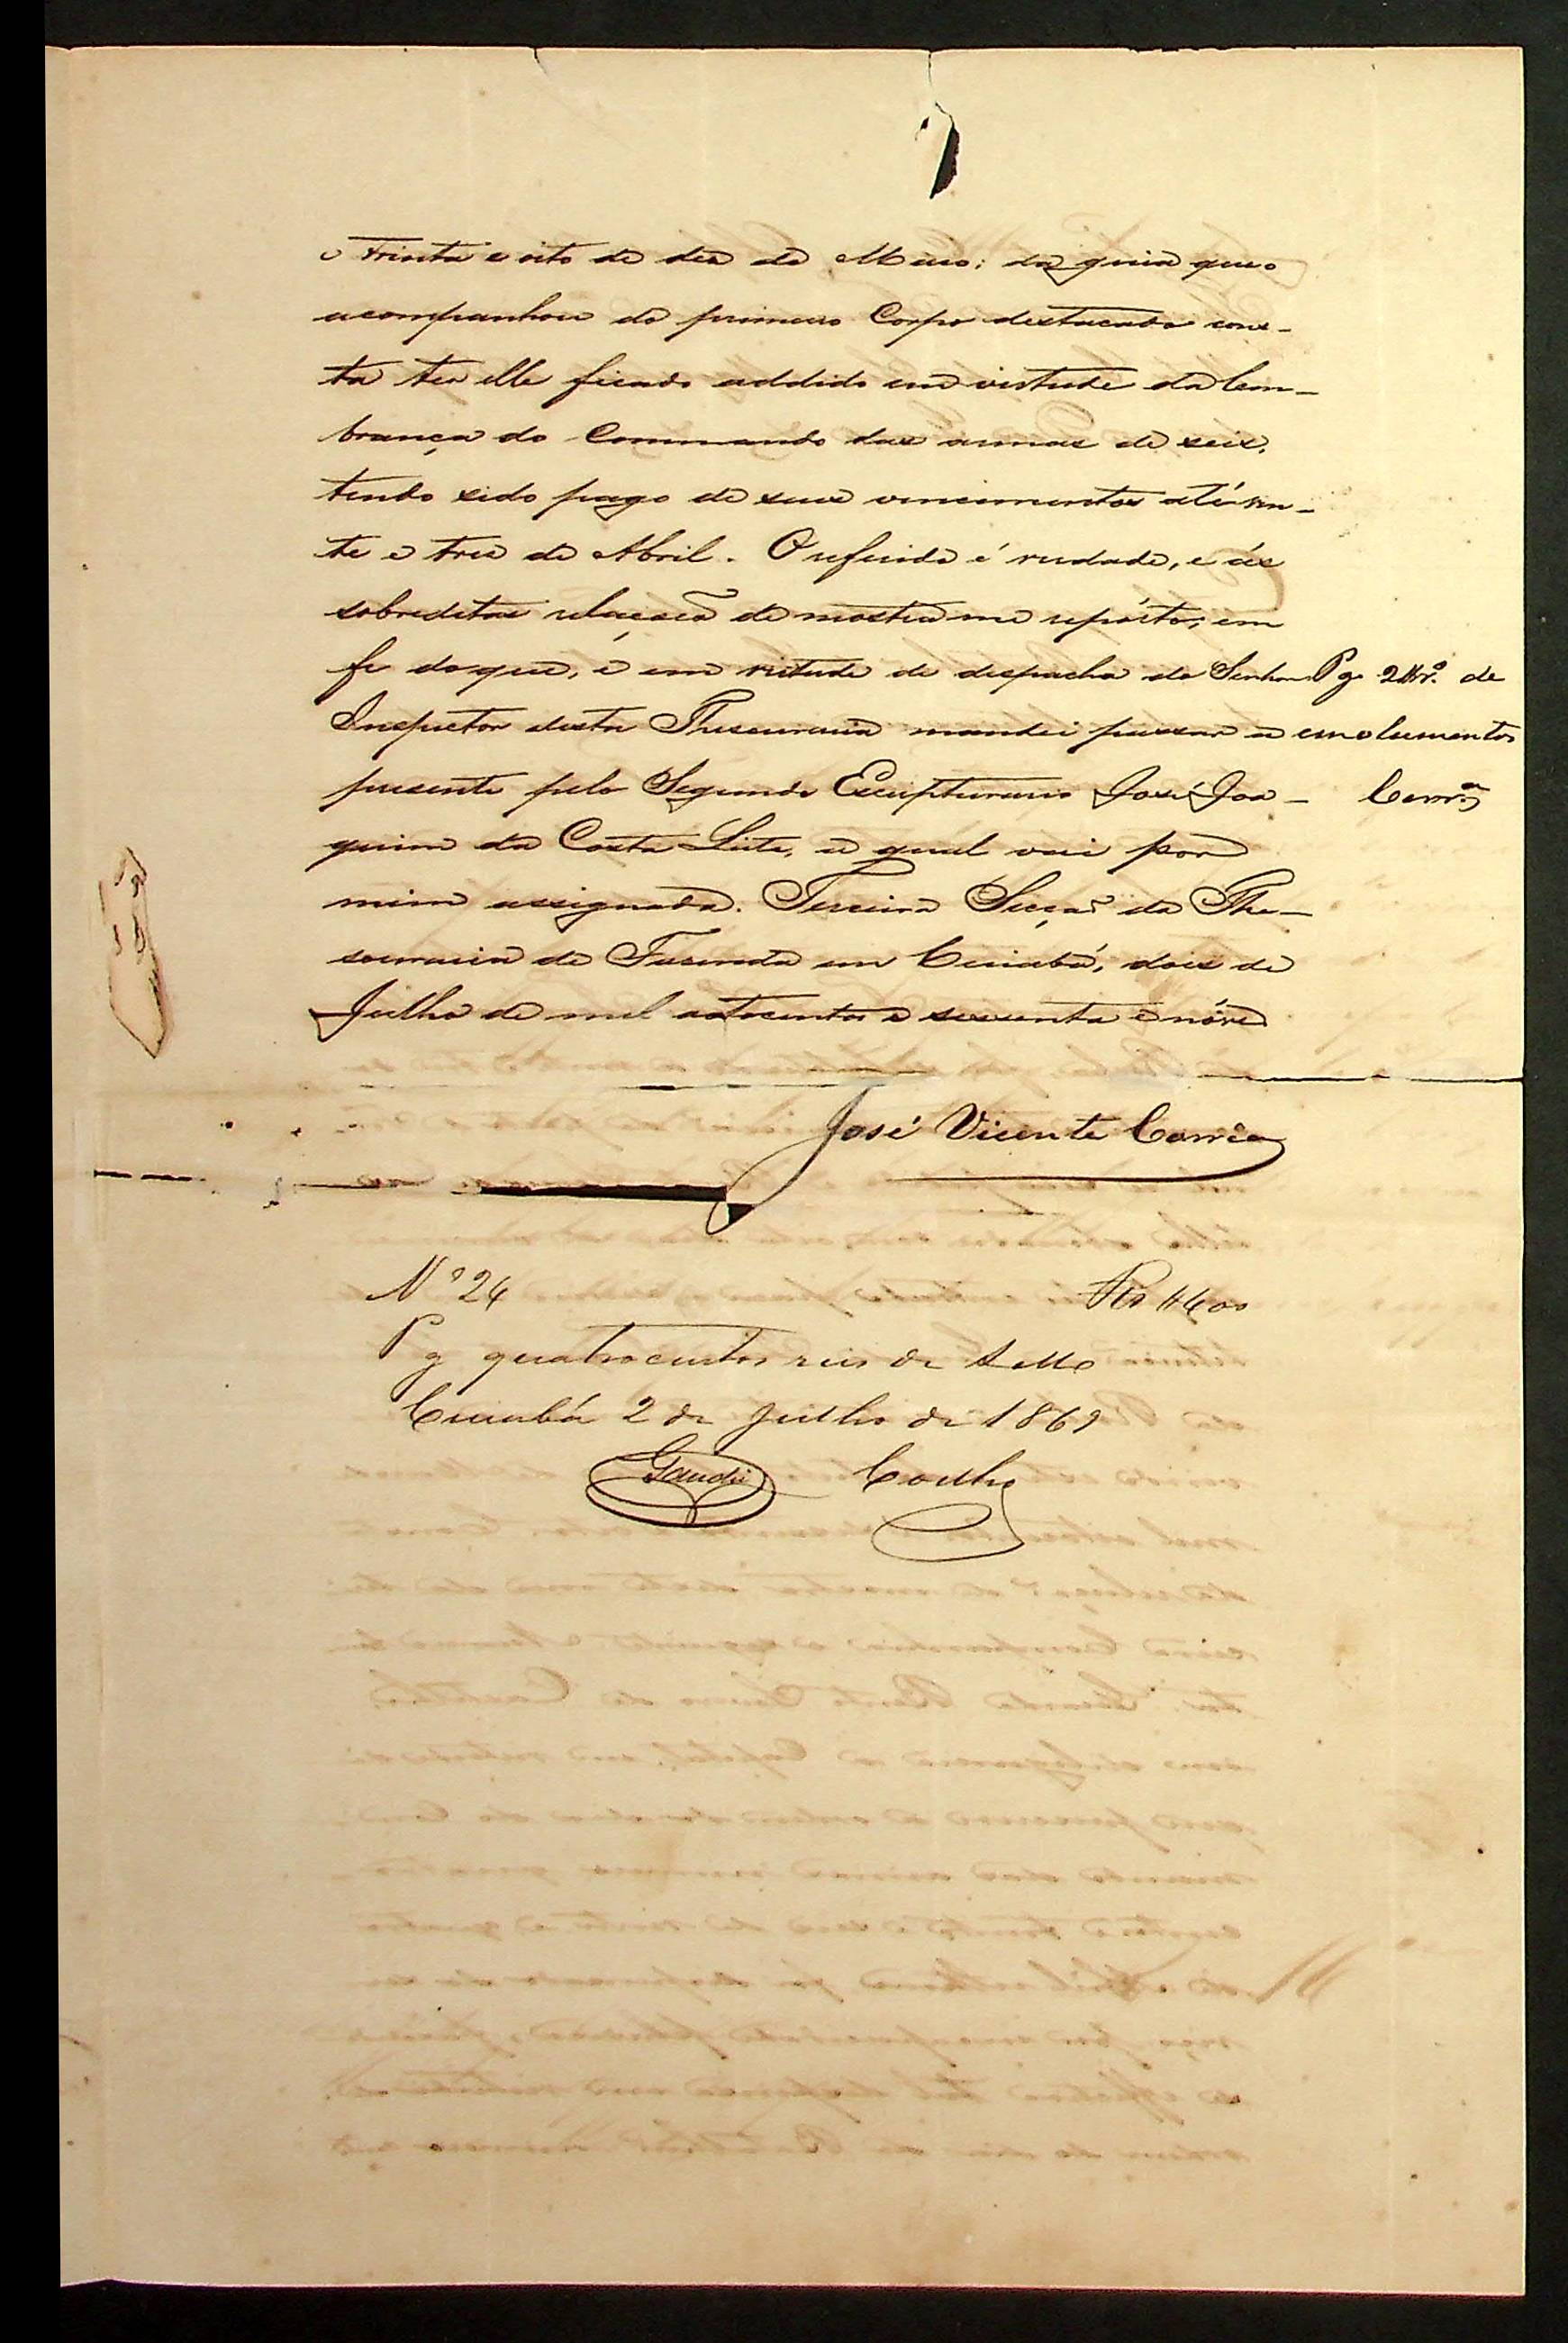 e trinta e oito de dez de Maio; da guia que o
acompanhou do primeiro Corpo destacado cons-
ta ter elle ficado addido em virtude da lem-
brança do Commando das armas de seis,
tendo sido pago de seus vencimentos até vin-
te e tres de Abril. O referido é verdade, e ás
sobreditas relações de mostra me repórto; em
fé do que, e em virtude de despacho do Senhor
Inspector desta Thesouraria mandei passar a
presente pelo Segundo Escripturario José Joa-
quim da Costa Leite, a qual vai por
mim assignada. Terceira Secção da The-
souraria de Fazenda em Cuiabá, dois de
Julho de mil oitocentos e sessenta e nóve
Pg 2 de
emolumentos
Corrª
José Vicente Corrêa
Nº 24 Rs $400
Pg quatrocentos reis de Sello
Cuiabá 2 de Julho de 1869
Gaudie Coelho